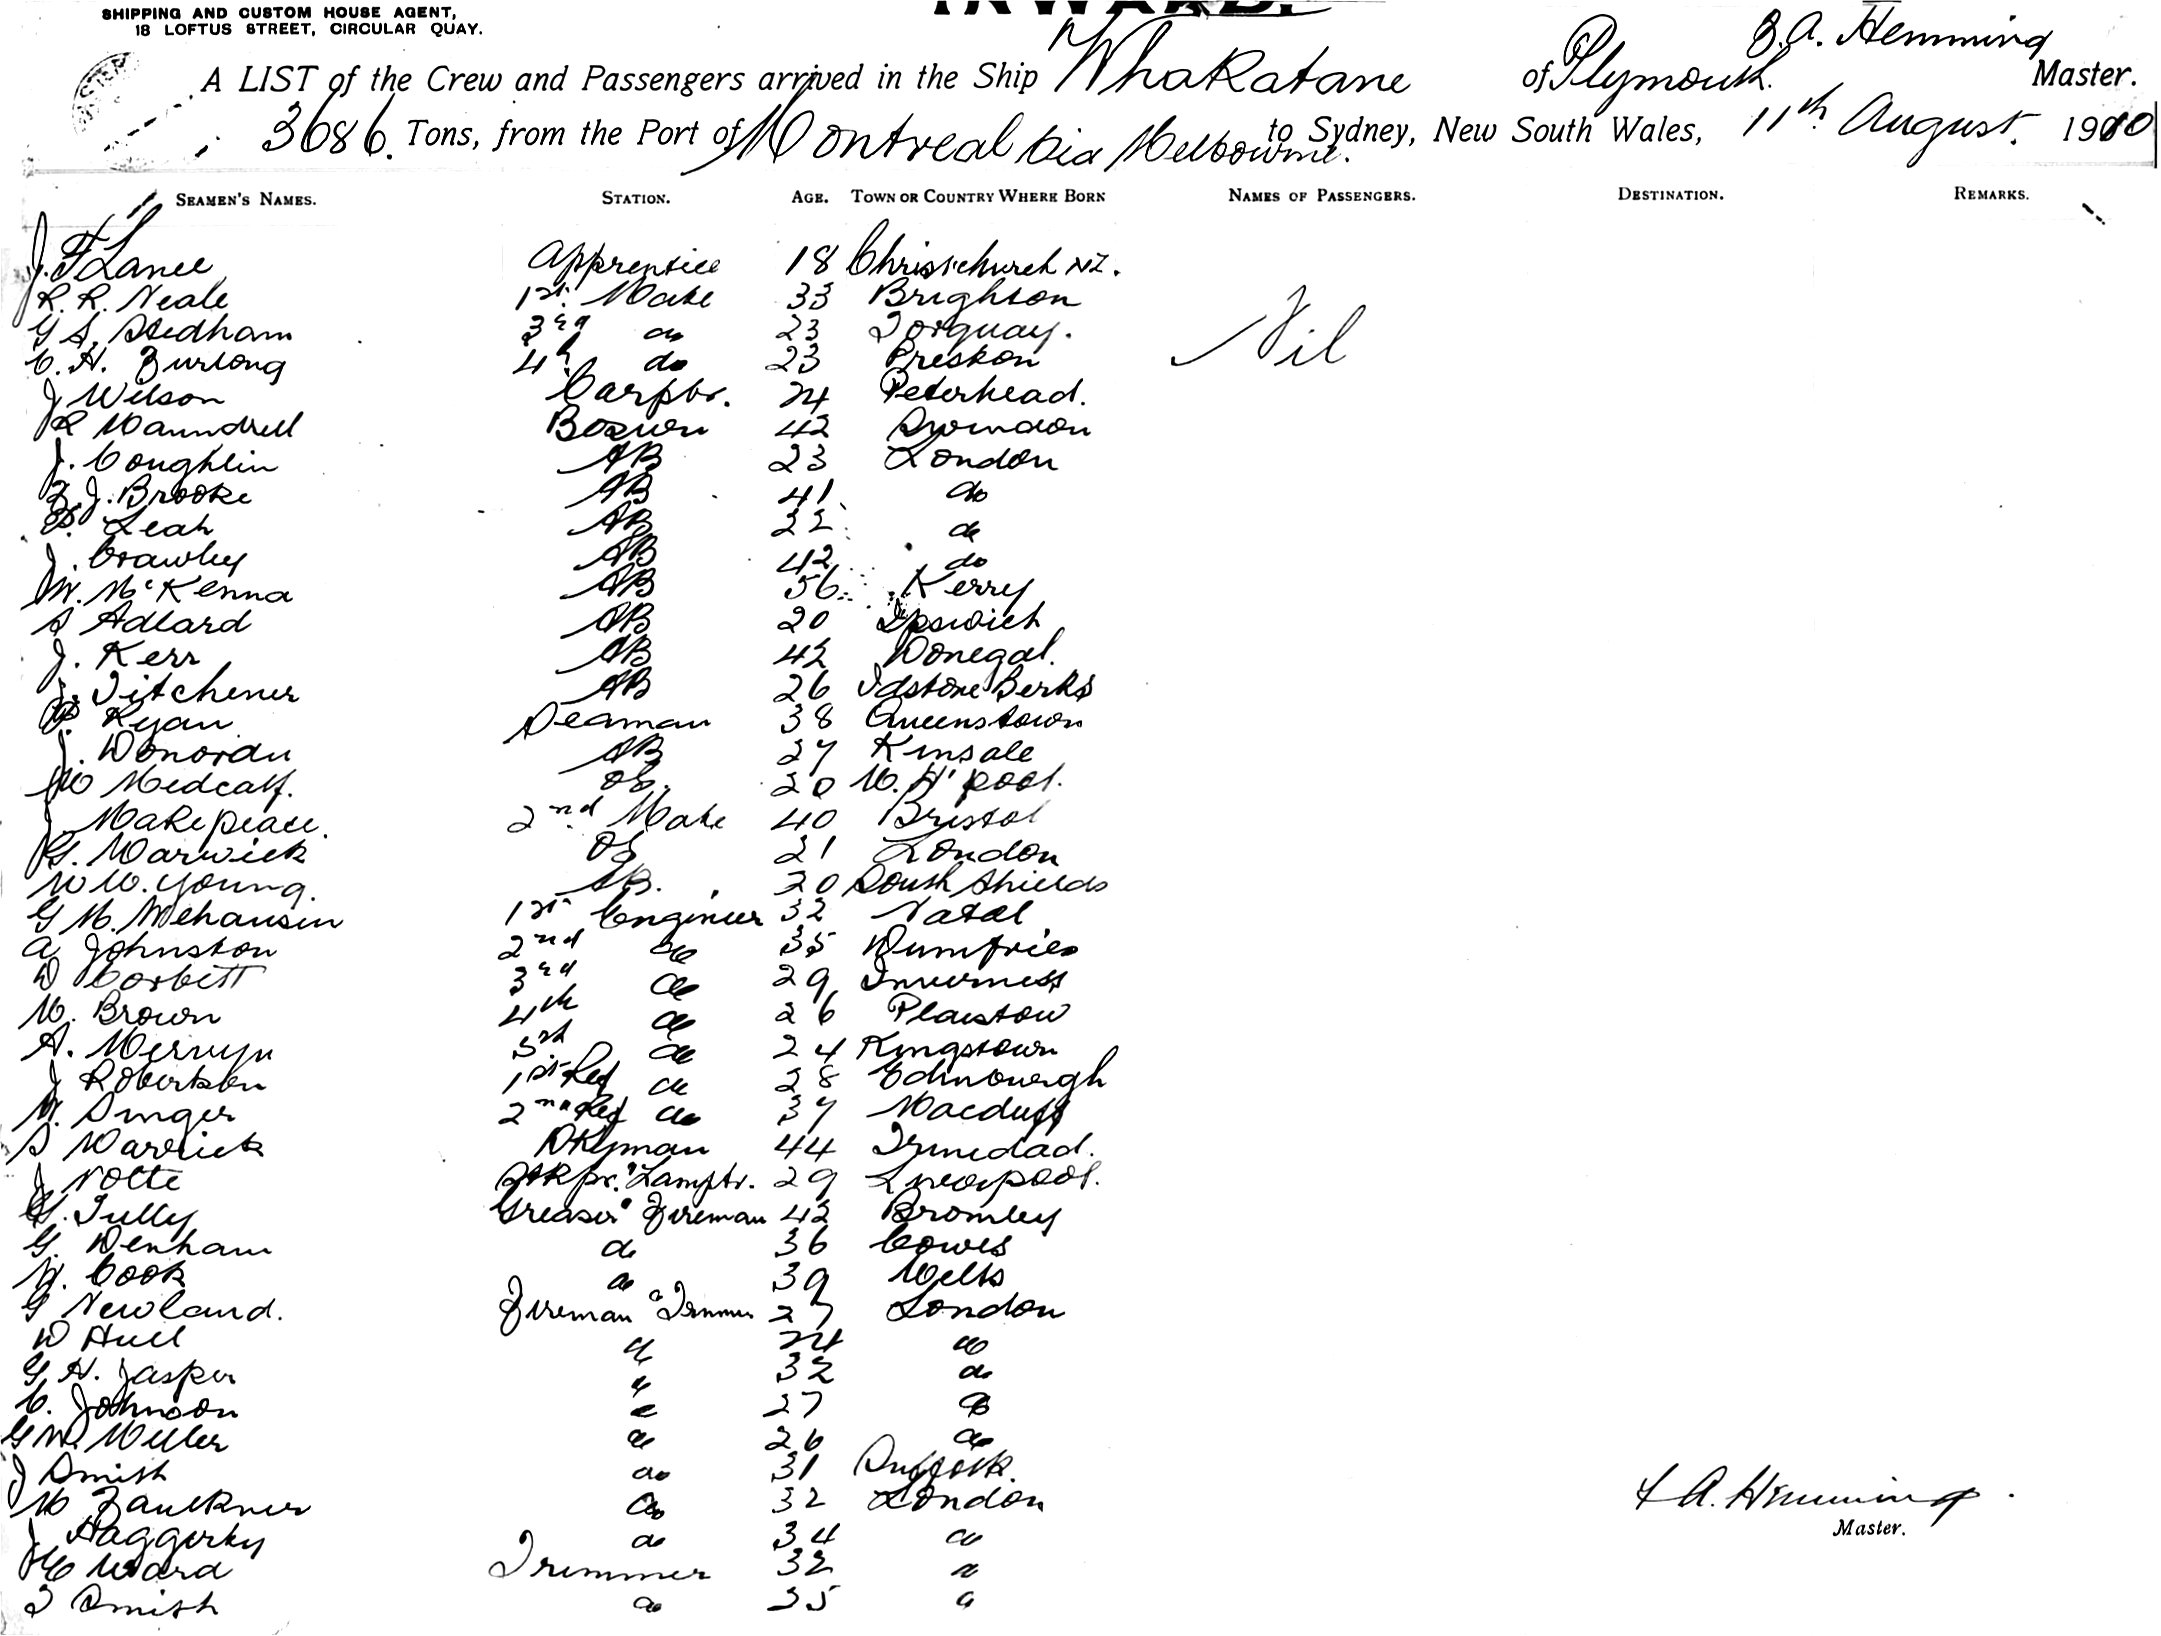 SHIPPING AND CUSTOM HOUSE AGENT,
18 LOFTUS STREET, CIRCULAR QUAY.
INWARD.
A LIST of the Crew and Passengers arrived in the Ship Whakatane of Plymouth. A. Hemming Master.
3686. Tons, from the Port of Montreal via Melbourne. to Sydney, New South Wales, 11th August. 1910
SEAMEN'S NAMES. STATION. AGE. TOWN OR COUNTRY WHERE BORN NAMES OF PASSENGERS. DESTINATION. REMARKS.
J. F Lance Apprentice 18 Christchurch NZ.
R. R. Neale 1st. Mate 33 Brighton Nil
G S. Stedham 3rd do 23 Torquay.
C. H. Furlong 4th do 23 Preston
J Wilson Carptr. 24 Peterhead.
R Maundrell Bosun 42 Swindon
J. Coughlin AB 23 London
F. J. Brooke AB 41 do
Leah AB 22 do
J. Crawley AB 42 do
W. McKenna AB 56 Kerry
A Adlard AB 20 Ipswich
J. Kerr AB 42 Donegal.
Titchener AB 26 Idstone Berks
P. Ryan Seaman 38 Queenstown
J. AB 27 Kinsale
W Medcalf. OS. 20 W. H'pool.
J Makepeace. 2nd Mate 40 Bristol
G. Warwick OS 21 London
W W. Young. AB. 20 South Shields
G M. 1st Engineer 32 Natal
A Johnston 2nd do 35 Dumfries
D Corbett 3rd do 29 Inverness
W. Brown 4th do 26 Plaistow
A. Mervyn 5th do 24 Kingstown
J Robertson 1st Ref do 28 Edinburgh
W. Singer 2nd Ref do 37 Macduff
S Warrick Dkyman 44 Trinidad.
J Notte Stkpr. & Lamptr. 29 Liverpool.
G. Tully Greaser & Fireman 42 Bromley
G. Denham do 36 Cowes
W. Cook do 39 Wilts
G Newland. Fireman & Trimmer 27 London
W Hull do 24 do
G H. Jasper do 32 do
C. Johnson do 27 do
G W. Miller do 26 do
J Smith do 31 Suffolk.
W Faulkner do 32 London
J Haggerty do 34 do
Ward Trimmer 32 do
T Smith do 35 do
A. Hemming.
Master.